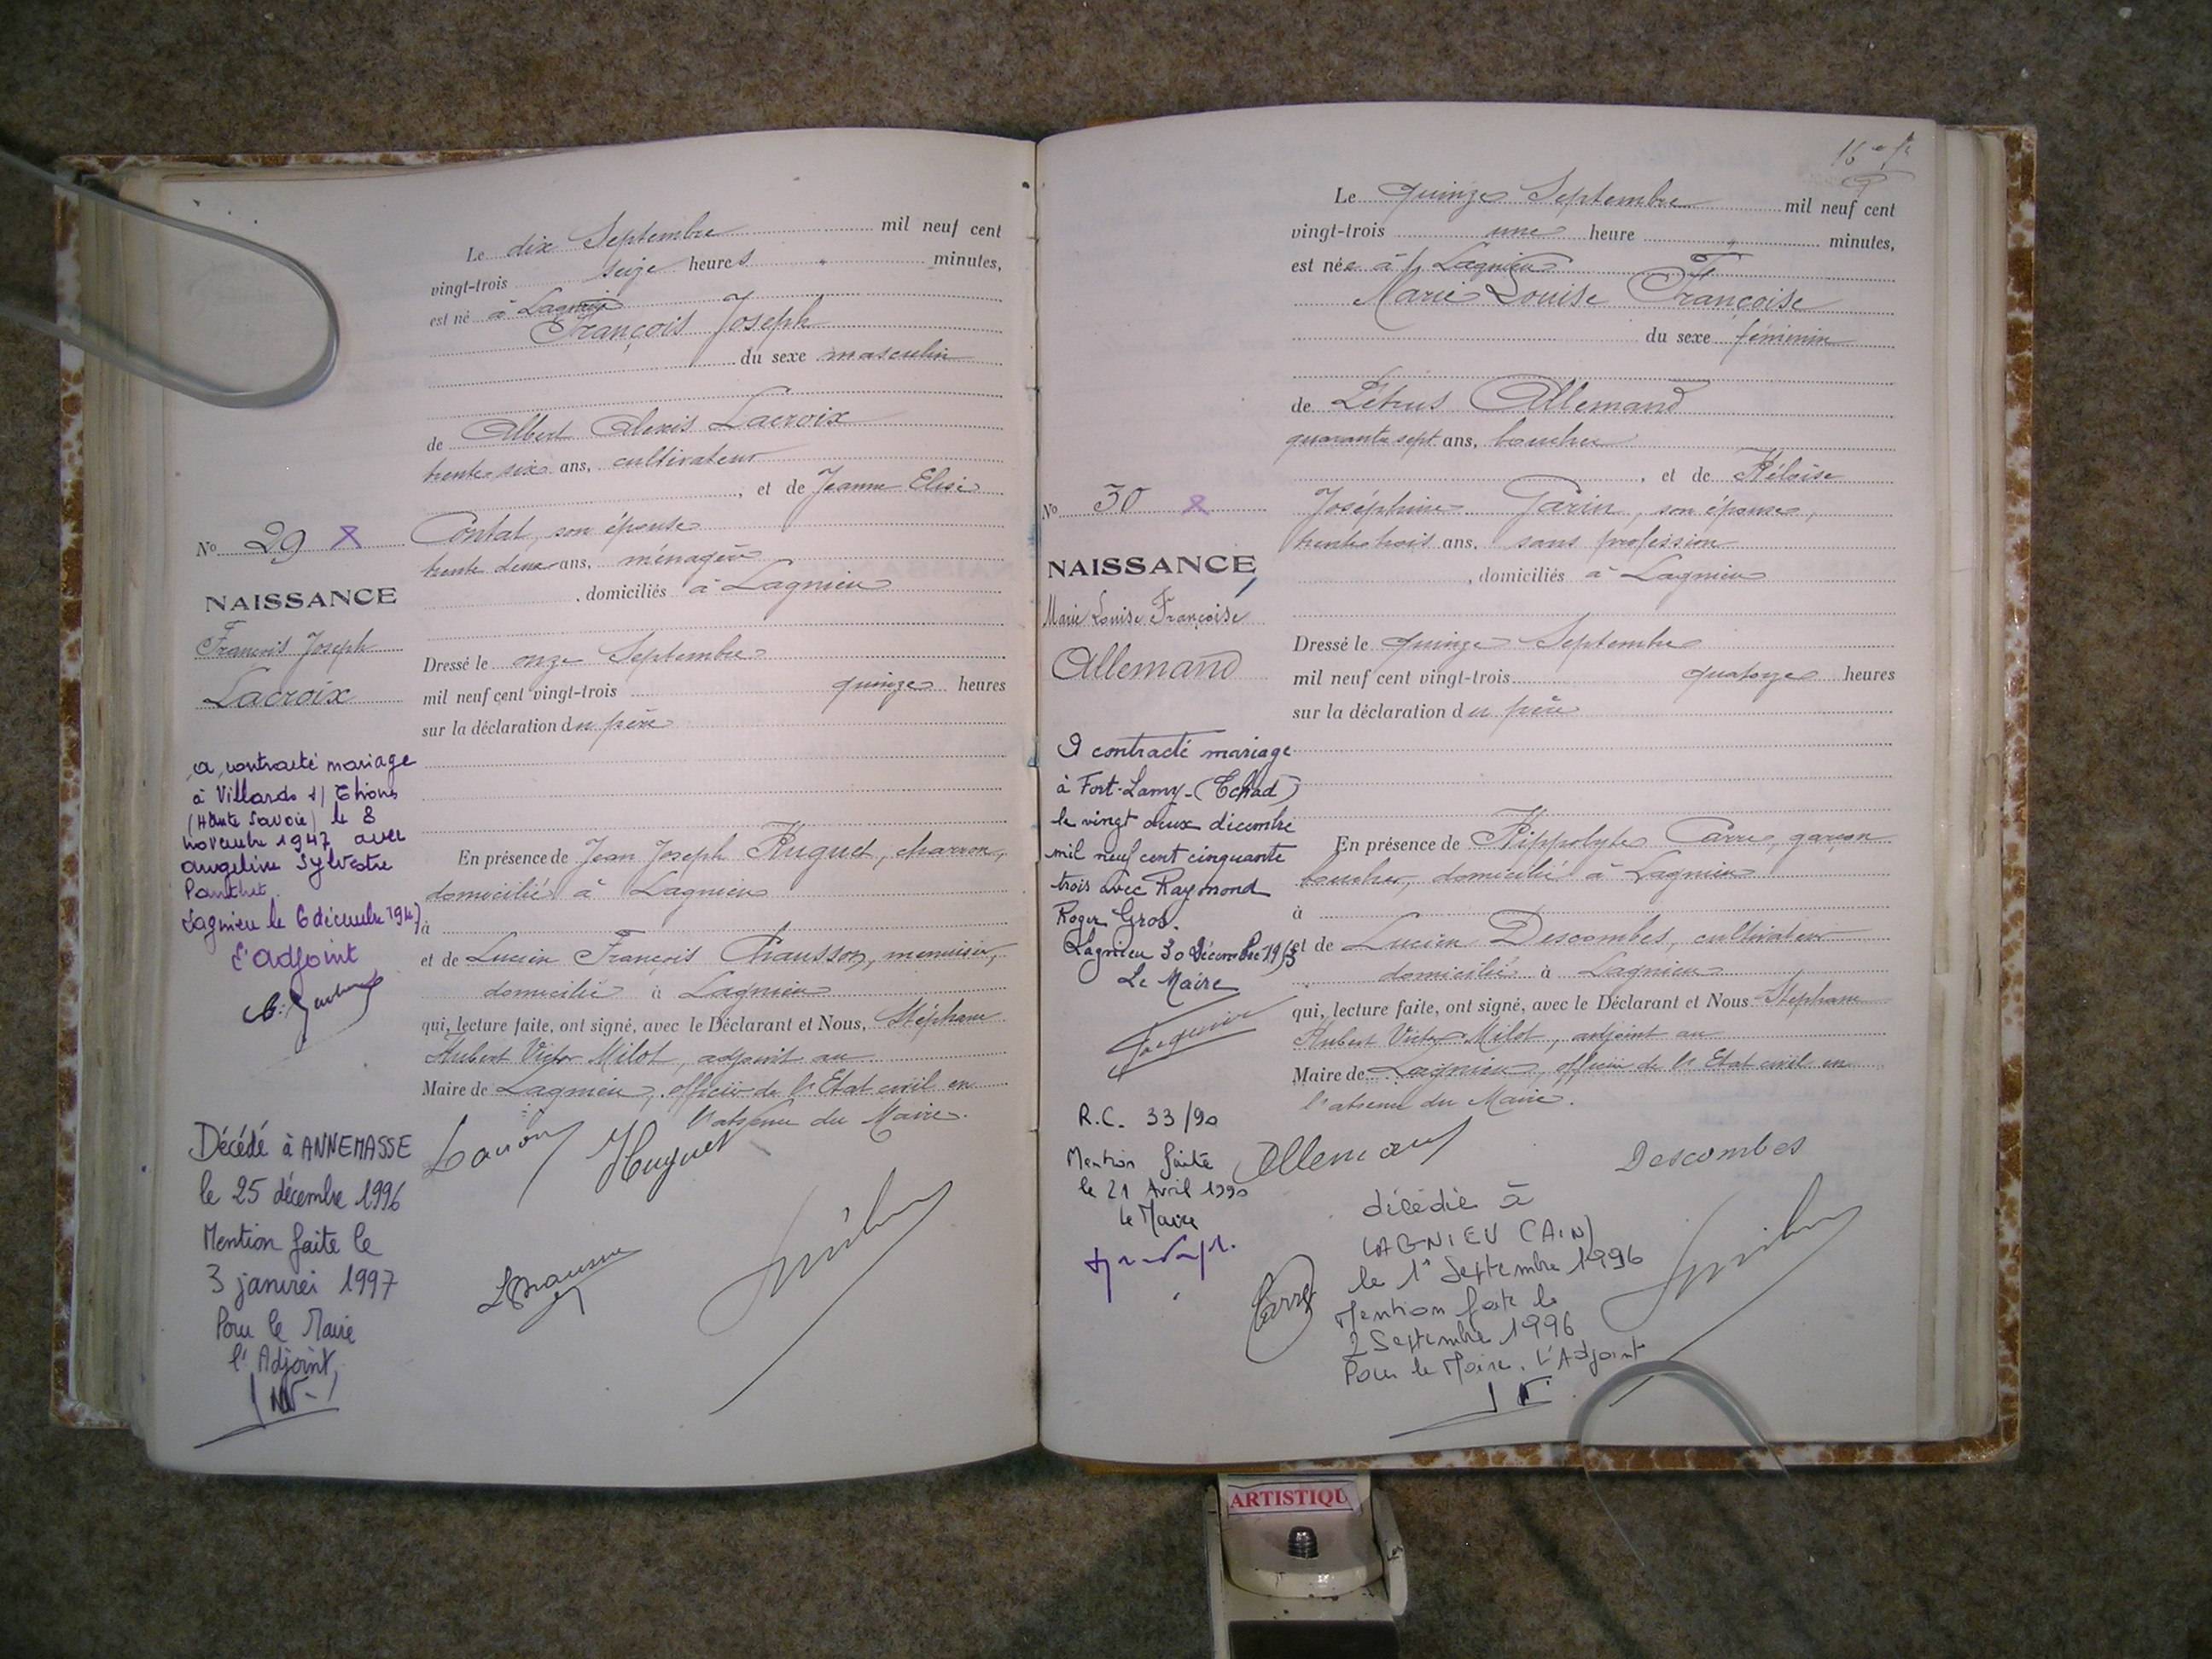 Le dix Septembre mil neuf cent
vingt-trois seize heures " minutes,
est né à Lagnieu
François Joseph
du sexe masculin
de Albert Alexis Lacroix
trente six ans, cultivateur
, et de Jeanne Elise
Contat, son épouse
trente deux ans, ménagère
, domiciliés à Lagnieu
Dressé le onze Septembre
mil neuf cent vingt-trois quinze heures
sur la déclaration du père
En présence de Jean Joseph Huguet, charron,
domicilié à Lagnieu
à
et de Lucien François Chausson, menuisier,
domicilié à Lagnieu
qui, lecture faite, ont signé, avec le Déclarant et Nous, Stéphane
Hubert Victor Milot, adjoint au
Maire de Lagnieu, officier de l'Etat civil en
l'absence du Maire.
Huguet
No 29
NAISSANCE
François Joseph
Lacroix
a contracté mariage
à Villards s/ Thônes
(Haute Savoie) le 8
novembre 1947 avec
Angeline Sylvestre
Lagnieu le 6 décembre 1947
l'adjoint
Décédé à ANNEMASSE
le 25 décembre 1996
Mention faite le
3 janvier 1997
Pour le Maire
l'Adjoint,
Le quinze Septembre mil neuf cent
vingt-trois une heure " minutes,
est née à Lagnieu
Marie Louise Françoise
du sexe féminin
de Pétrus Allemand
quarante sept ans, boucher
, et de Héloïse
Joséphine Garin, son épouse,
trente trois ans, sans profession
, domiciliés à Lagnieu
Dressé le quinze Septembre
mil neuf cent vingt-trois quatorze heures
sur la déclaration du père
En présence de Hippolyte Carre, garçon
boucher, domicilié à Lagnieu
à
et de Lucien Descombes, cultivateur
domicilié à Lagnieu
qui, lecture faite, ont signé, avec le Déclarant et Nous Stéphane
Hubert Victor Milot, adjoint au
Maire de Lagnieu, officier de l'Etat civil en
l'absence du Maire.
Allemand Descombes
Carre
No 30
NAISSANCE
Marie Louise Françoise
Allemand
A contracté mariage
à Fort-Lamy-(Tchad)
le vingt deux décembre
mil neuf cent cinquante
trois avec Raymond
Roger Gros.
Lagnieu 30 Décembre 1953
Le Maire
R.C. 33/90
Mention faite
le 21 Avril 1990
Le Maire
décédée à
LAGNIEU (AIN)
le 1° Septembre 1996
Mention faite le
2 Septembre 1996
Pour le Maire, l'Adjoint
ARTISTIQU